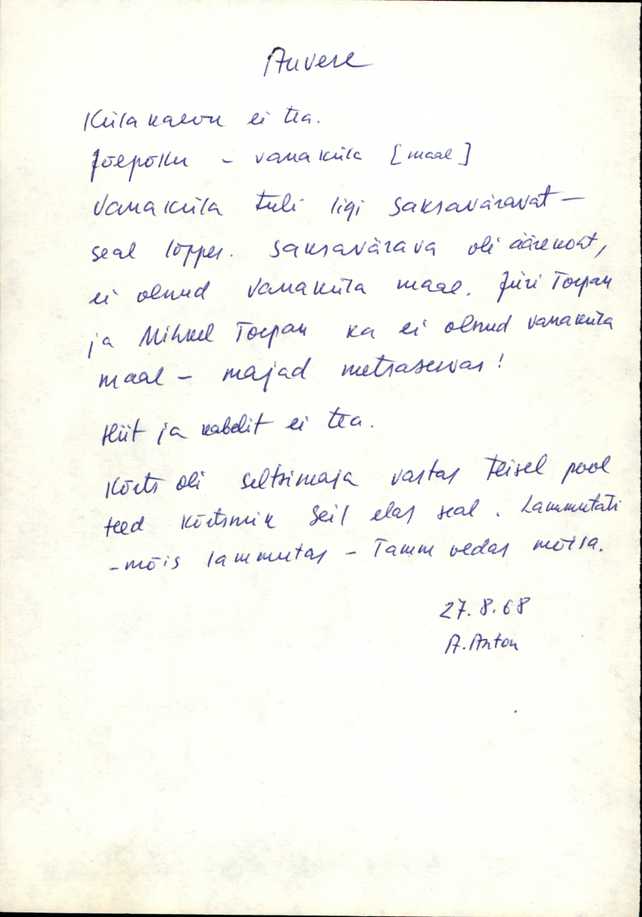 Auvere
Külakaevu ei tea.
Jõepõllu – vanaküla [maal]
Vanaküla tuli ligi Saksaväravat –
seal lõppes. Saksavärava oli äärekoht,
ei olnud vanaküla maal. Jüri Toepan
ja Mihkel Toepan ka ei olnud vanaküla
maal – majad metsaservas!
Hiit ja kabelit ei tea.
Kõrts oli seltsimaja vastas teisel pool
teed kõrtsmik Seil elas seal. Lammutati
– mõis lammutas – Tamm vedas mõisa.
27.8.68
A. Anton